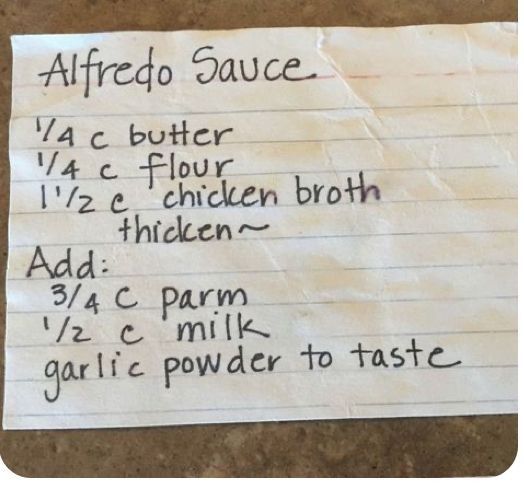 Alfredo Sauce
1/4 c butter
1/4 c flour
1 1/2 c chicken broth
thicken~
Add:
3/4 c parm
1/2 c milk
garlic powder to taste